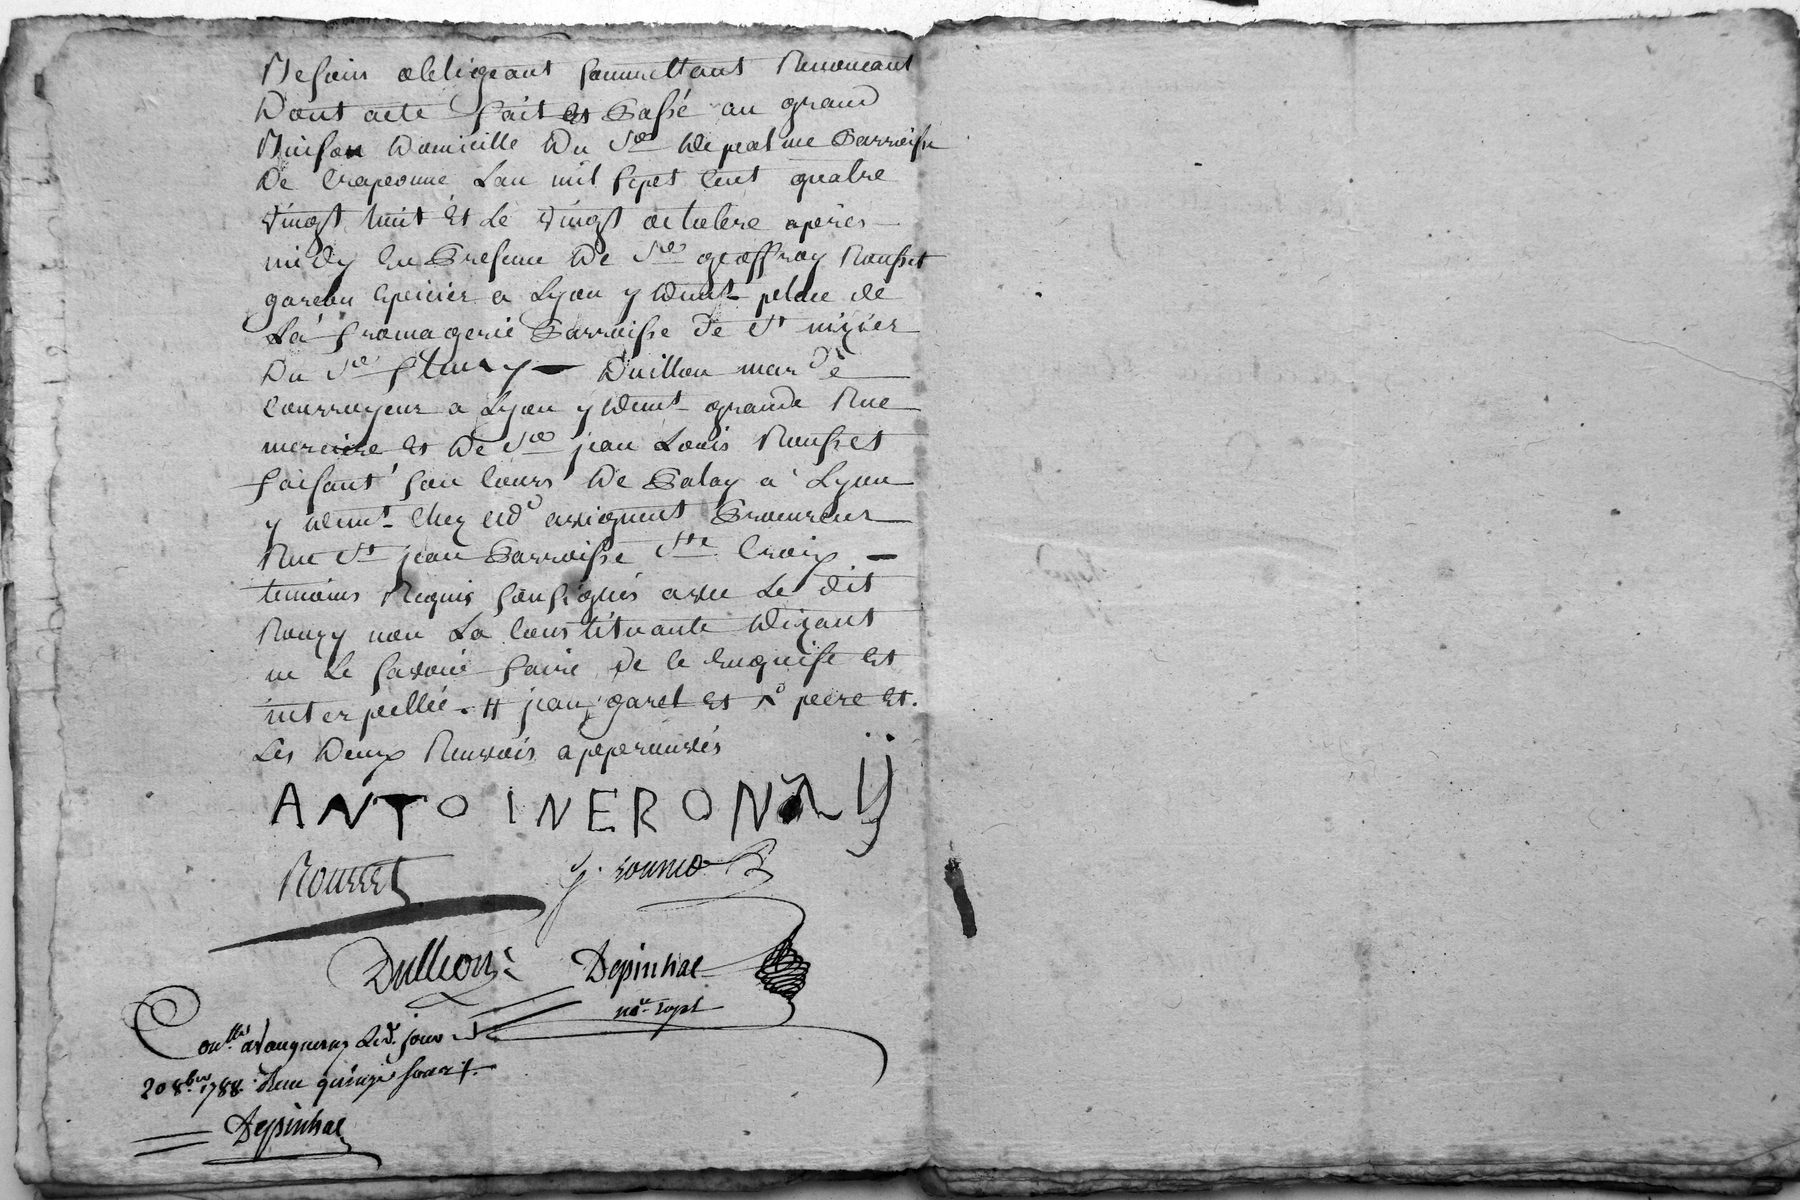 Besoin obligeant soumettant Renonceant
Dont acte fait et Passé au grand
Buisson Domicille Du Sr Depalme Parroisse
De Craponne Lan mil sept Cent quatre
vingt huit Et Le vingt octobre apres
midy En Presence De Sr geoffroy Rousset
garcon Epicier a Lyon y demt place de
La fromagerie Parroisse de St nizier
Du Sr fleury Duillon marde
Courroyeur a Lyon y demt grande Rue
merciere et De Sr jean Louis Rousset
faisant son Cours De Palay a Lyon
y demt Chez Me avignent Procureur
Rue St jean Parroisse Ste Croix
temoins Requis soussignés avec Le dit
Ronzy non La Constituante Dizant
ne Le savoir faire de ce Enquise et
interpellée. # jean, garel et Ao pere et.
Les Deux Renvois approuvés
ANTOINERONZY
Rousset
Dullion
Depinhac
nore Royal
Conllé a Vaugneray Led. jour
20 8bre 1788. Reçu quinze sous
Depinhac